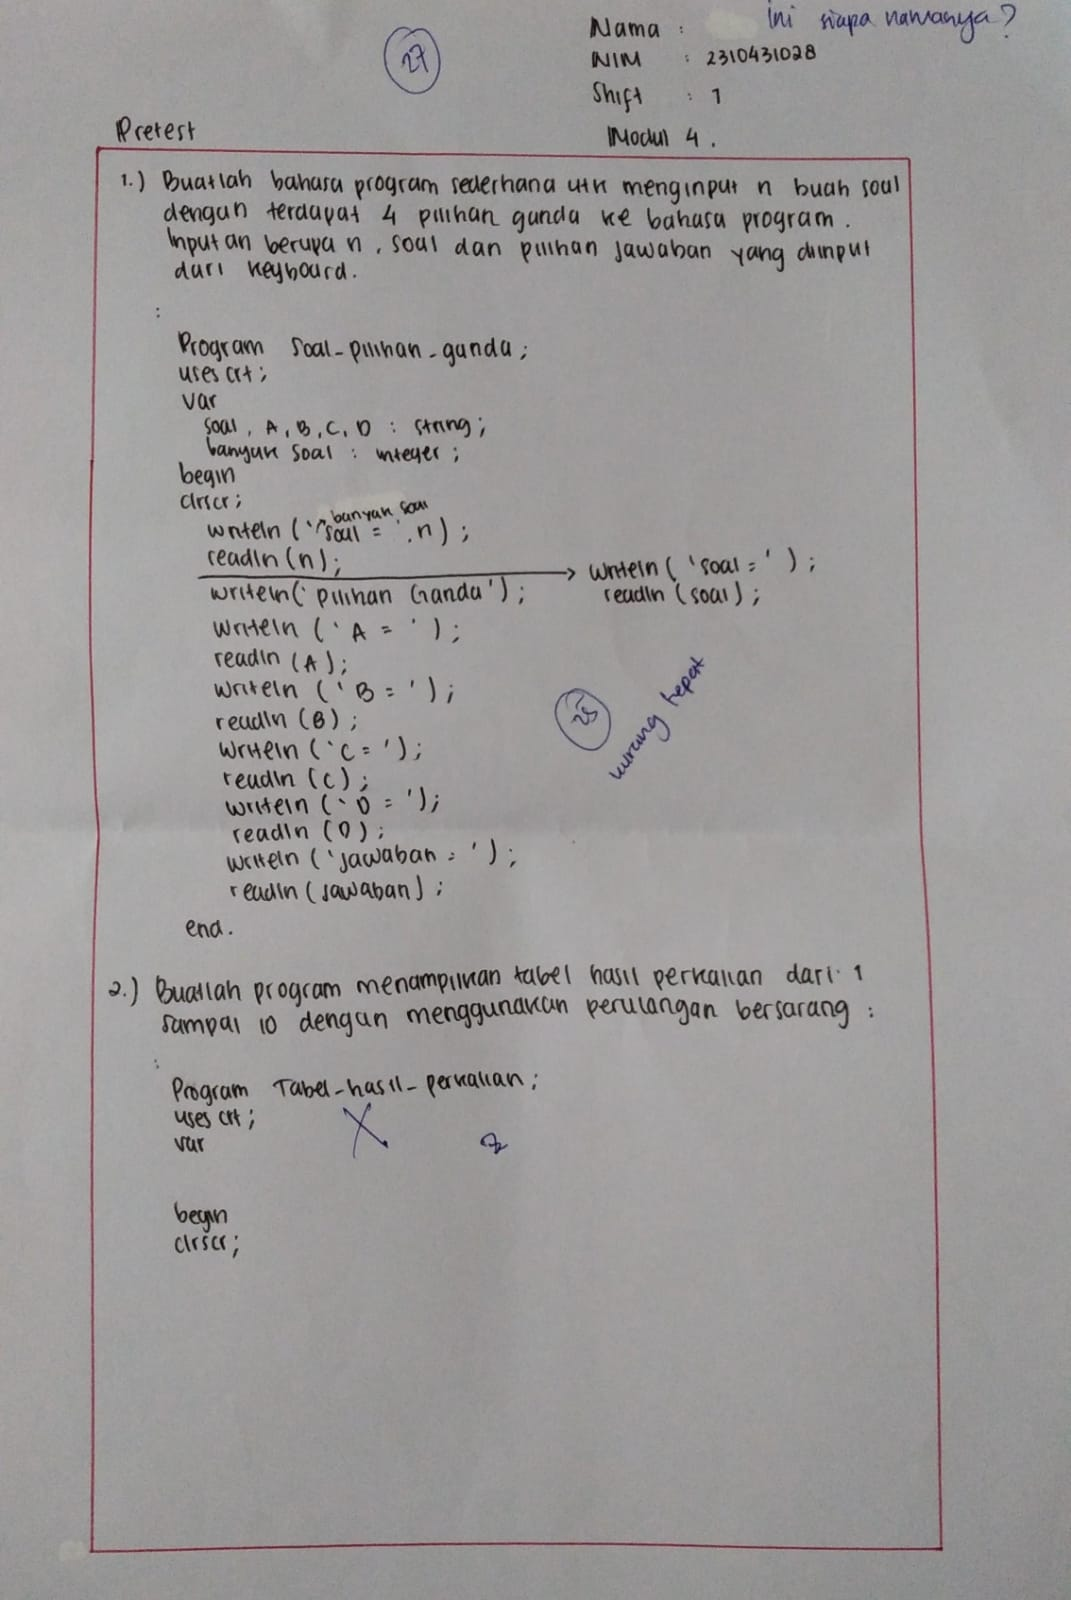 Nama : Ini siapa namanya?
27
NIM : 2310431028
Shift : 1
Pretest
Modul 4.
1.) Buatlah bahasa program sederhana utk menginput n buah soal
dengan terdapat 4 pilihan ganda ke bahasa program.
Inputan berupa n, soal dan pilihan jawaban yang diinput
dari keyboard.
:
Program Soal_pilihan_ganda;
uses crt;
var
soal, A, B, C, D : string;
banyak soal : integer;
begin
clrscr;
banyak soal
writeln ('soal = ', n);
readln (n);
→ writeln ('soal = ');
readln (soal);
writeln (' pilihan Ganda');
writeln ('A = ');
readln (A);
writeln ('B = ');
readln (B);
writeln ('C = ');
readln (C);
writeln ('D = ');
readln (D);
writeln ('jawaban = ');
readln (jawaban);
end.
25
kurang tepat
2.) Buatlah program menampilkan tabel hasil perkalian dari 1
sampai 10 dengan menggunakan perulangan bersarang :
:
Program Tabel_hasil_perkalian;
uses crt;
var
begin
clrscr;